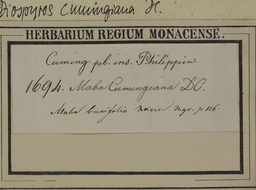 Diospyros Cumingiana H.
HERBARIUM REGIUM MONACENSE.
Cuming pl. ins. Philippin.
1694. Maba Cumingeana DC.
Maba buxifolia p. 116